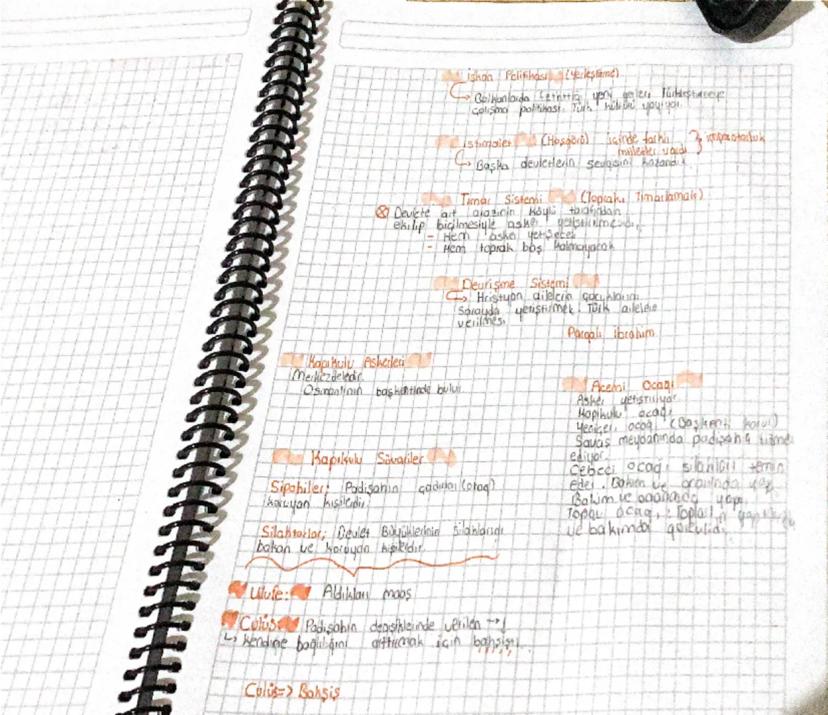 İskan Politikası (Yerleştirme)
Balkanlarda yeni yerleri Türkleştirmeye
çalışma politikası. Türk kültürü yayıyor.
İstimalet (Hoşgörü) içinde farklı
milletler vardı } imparatorluk
Başka devletlerin sevgisini kazandı.
Tımar Sistemi (Toprakı Tımarlamak)
Devlete ait arazinin köylü tarafından
ekilip biçilmesiyle asker yetiştirilmesidir.
- Hem asker yetişecek
- Hem toprak boş kalmayacak
Devrişme Sistemi
Hristiyan ailelerin çocuklarını
Sarayda yetiştirmek. Türk ailelere
verilmesi
Pargalı İbrahim
Kapıkulu Askerleri
Merkezdeledir.
Osmanlının başkentinde bulur.
Kapıkulu Süvariler
Sipahiler; Padişahın çadırını (otağ)
koruyan kişilerdir.
Silahtarlar; Devlet Büyüklerinin silahlarını
bakan ve koruyan kişilerdir.
Ulufe: Aldıkları maaş
Culüs Padişahın değişiklerinde verilen
Kendine bağlılığını arttırmak için bahşişi
Culüs => Bahşiş
Acemi Ocağı
Asker yetiştiriyor
Kapıkulu ocağı
Yeniçeri ocağı (Başkenti korur)
Savaş meydanında padişaha hizmet
ediyor.
Cebeci ocağı silahları temin
eder. Bakım ve onarımda yap
Bakım ve onarımda yapı
Topçu ocağı: Topların
ve bakımda görevlidir.